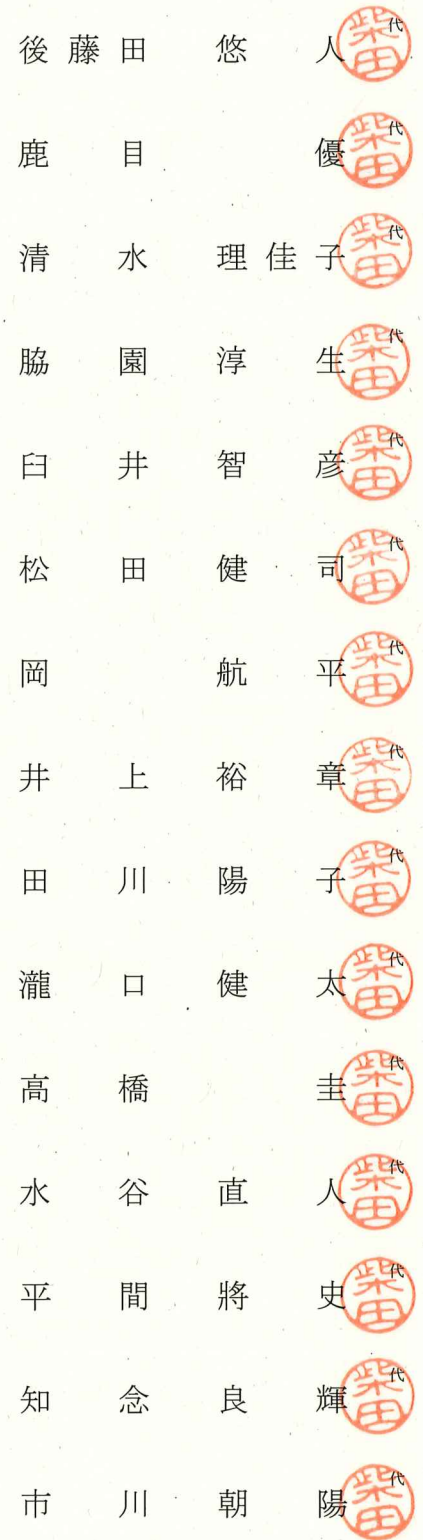 後藤田 悠人 代 柴田
鹿目 優 代 柴田
清水 理佳子 代 柴田
脇園 淳生 代 柴田
臼井 智彦 代 柴田
松田 健司 代 柴田
岡 航平 代 柴田
井上 裕章 代 柴田
田川 陽子 代 柴田
瀧口 健太 代 柴田
高橋 圭 代 柴田
水谷 直人 代 柴田
平間 將史 代 柴田
知念 良輝 代 柴田
市川 朝陽 代 柴田